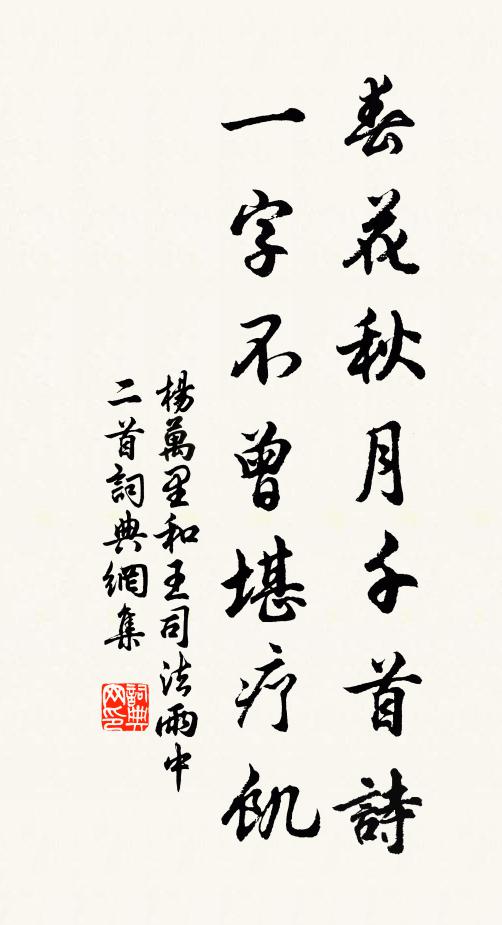 春花秋月千首詩
一字不曾堪疗飢
楊萬里和王司法雨中
二首詞典網集
詞典
网印